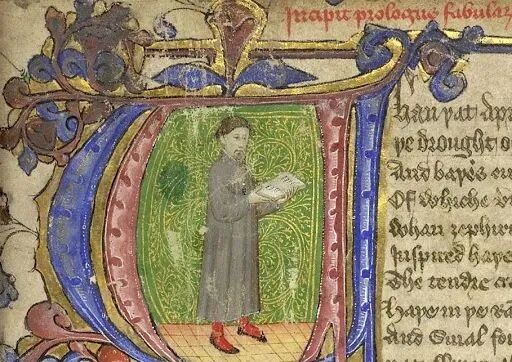 Incipit prologus fabular
Han þat Apr
þe drought o
And baþes eu
Of whiche v
Whan zephir
Inspired haþe
The tendre cr
Haþe in þe Ra
And Smal fo